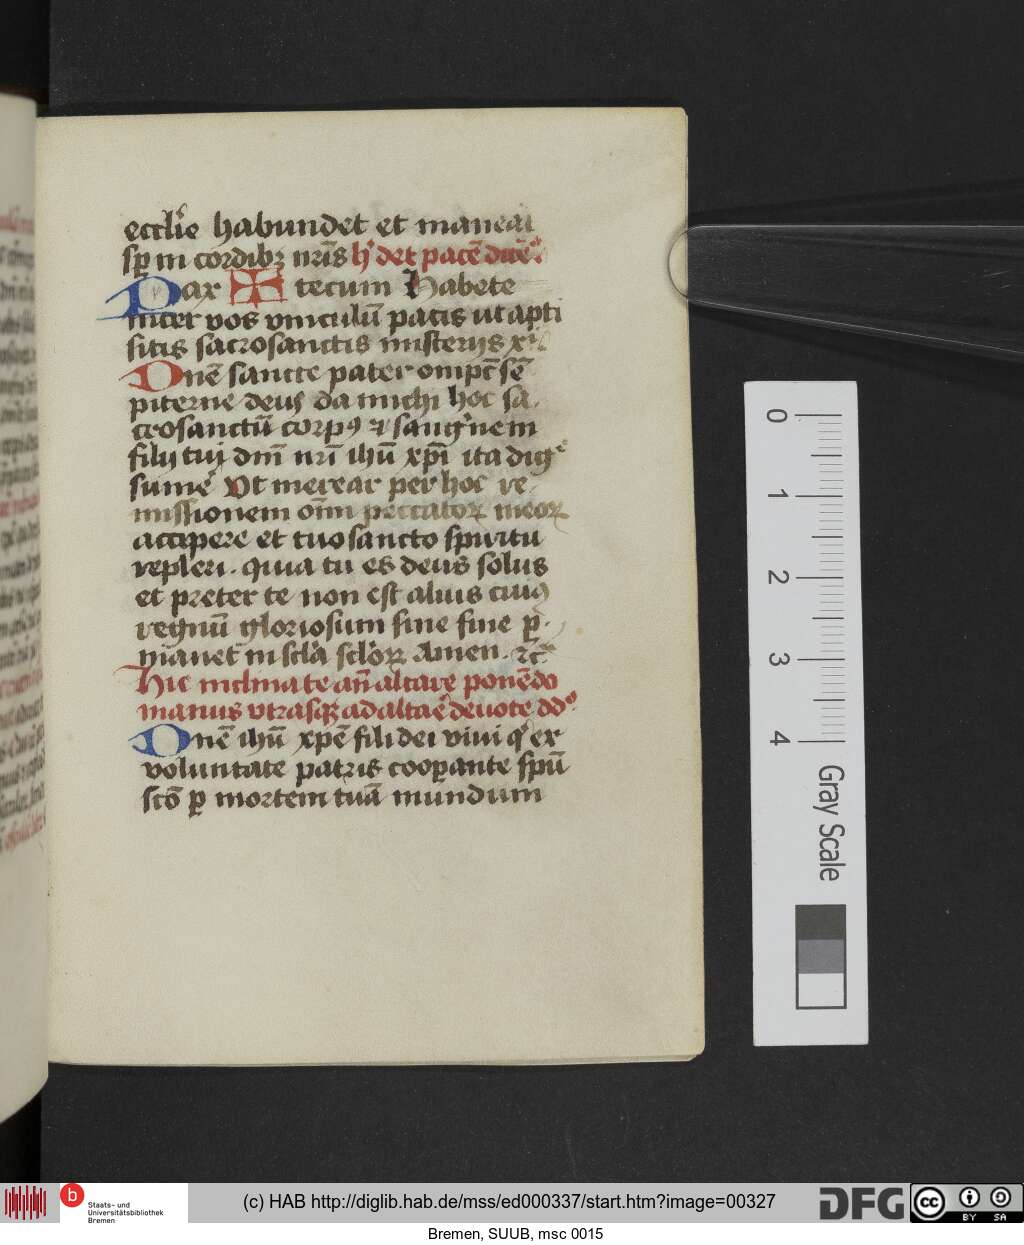 eccl'ie habundet et maneat
sp̄ in cordibꝫ nr̄is h' det pacē dicē'
Pax ✠ tecum Habete
inter vos vinculū pacis ut apti
sitis sacrosanctis misterijs xp̄i
Dn̄e sancte pater omp̄c sē
piterne deus da michi hoc sa
crosanctū corpꝰ ⁊ sang'nem
filij tuj dn̄i nr̄i ih̄u xp̄i ita dig
sume' Vt merear per hoc re
missionem oīm peccatoꝝ meoꝝ
accipere et tuo sancto spiritu
repleri. quia tu es deus solus
et preter te non est alius cuiꝰ
regnū gloriosum sine fine ꝑ
manet in sc̄la sc̄loꝝ Amen. ⁊c̄
Hic inclina te an̄ altare ponēdo
manus utrasqꝫ ad altar̄e deuote dd°
Dn̄e ih̄u xp̄e fili dei viui q' ex
voluntate patris cooꝑante spū
sc̄o ꝑ mortem tuā mundum
0
1
2
3
4
Gray Scale
b
Staats- und
Universitätsbibliothek
Bremen
(c) HAB http://diglib.hab.de/mss/ed000337/start.htm?image=00327
DFG
cc
BY SA
Bremen, SUUB, msc 0015